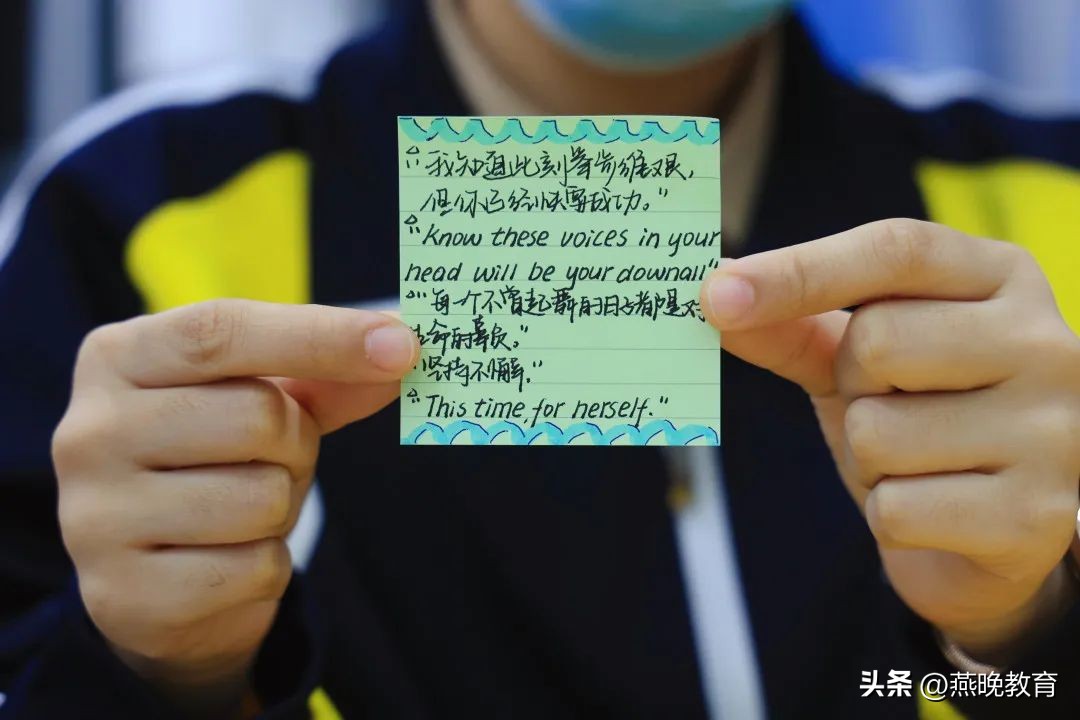 “我知道此刻举步维艰，
但你已经快要成功。”
“Know these voices in your
head will be your downall”
“每一个不曾起舞的日子都是对
生命的辜负。”
“坚持不懈。”
“This time, for herself.”
头条 @燕晚教育